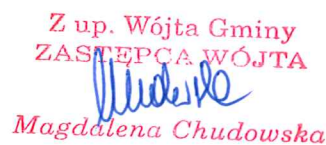 Z up. Wójta Gminy
ZASTĘPCA WÓJTA
Magdalena Chudowska